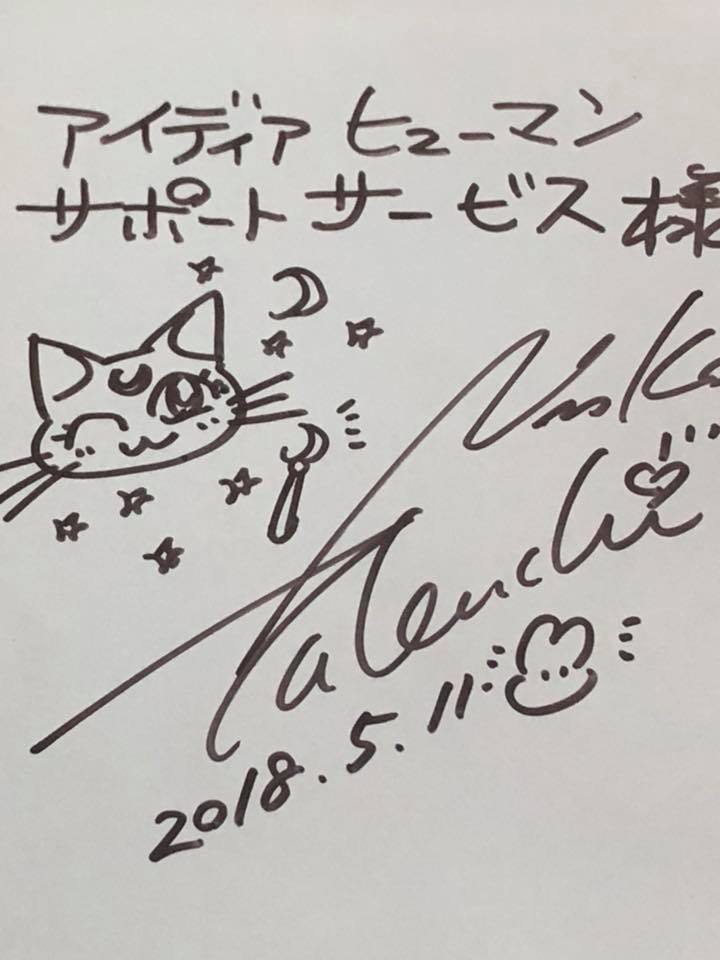 アイディア ヒューマン
サポートサービス様
Takeuchi
2018.5.11